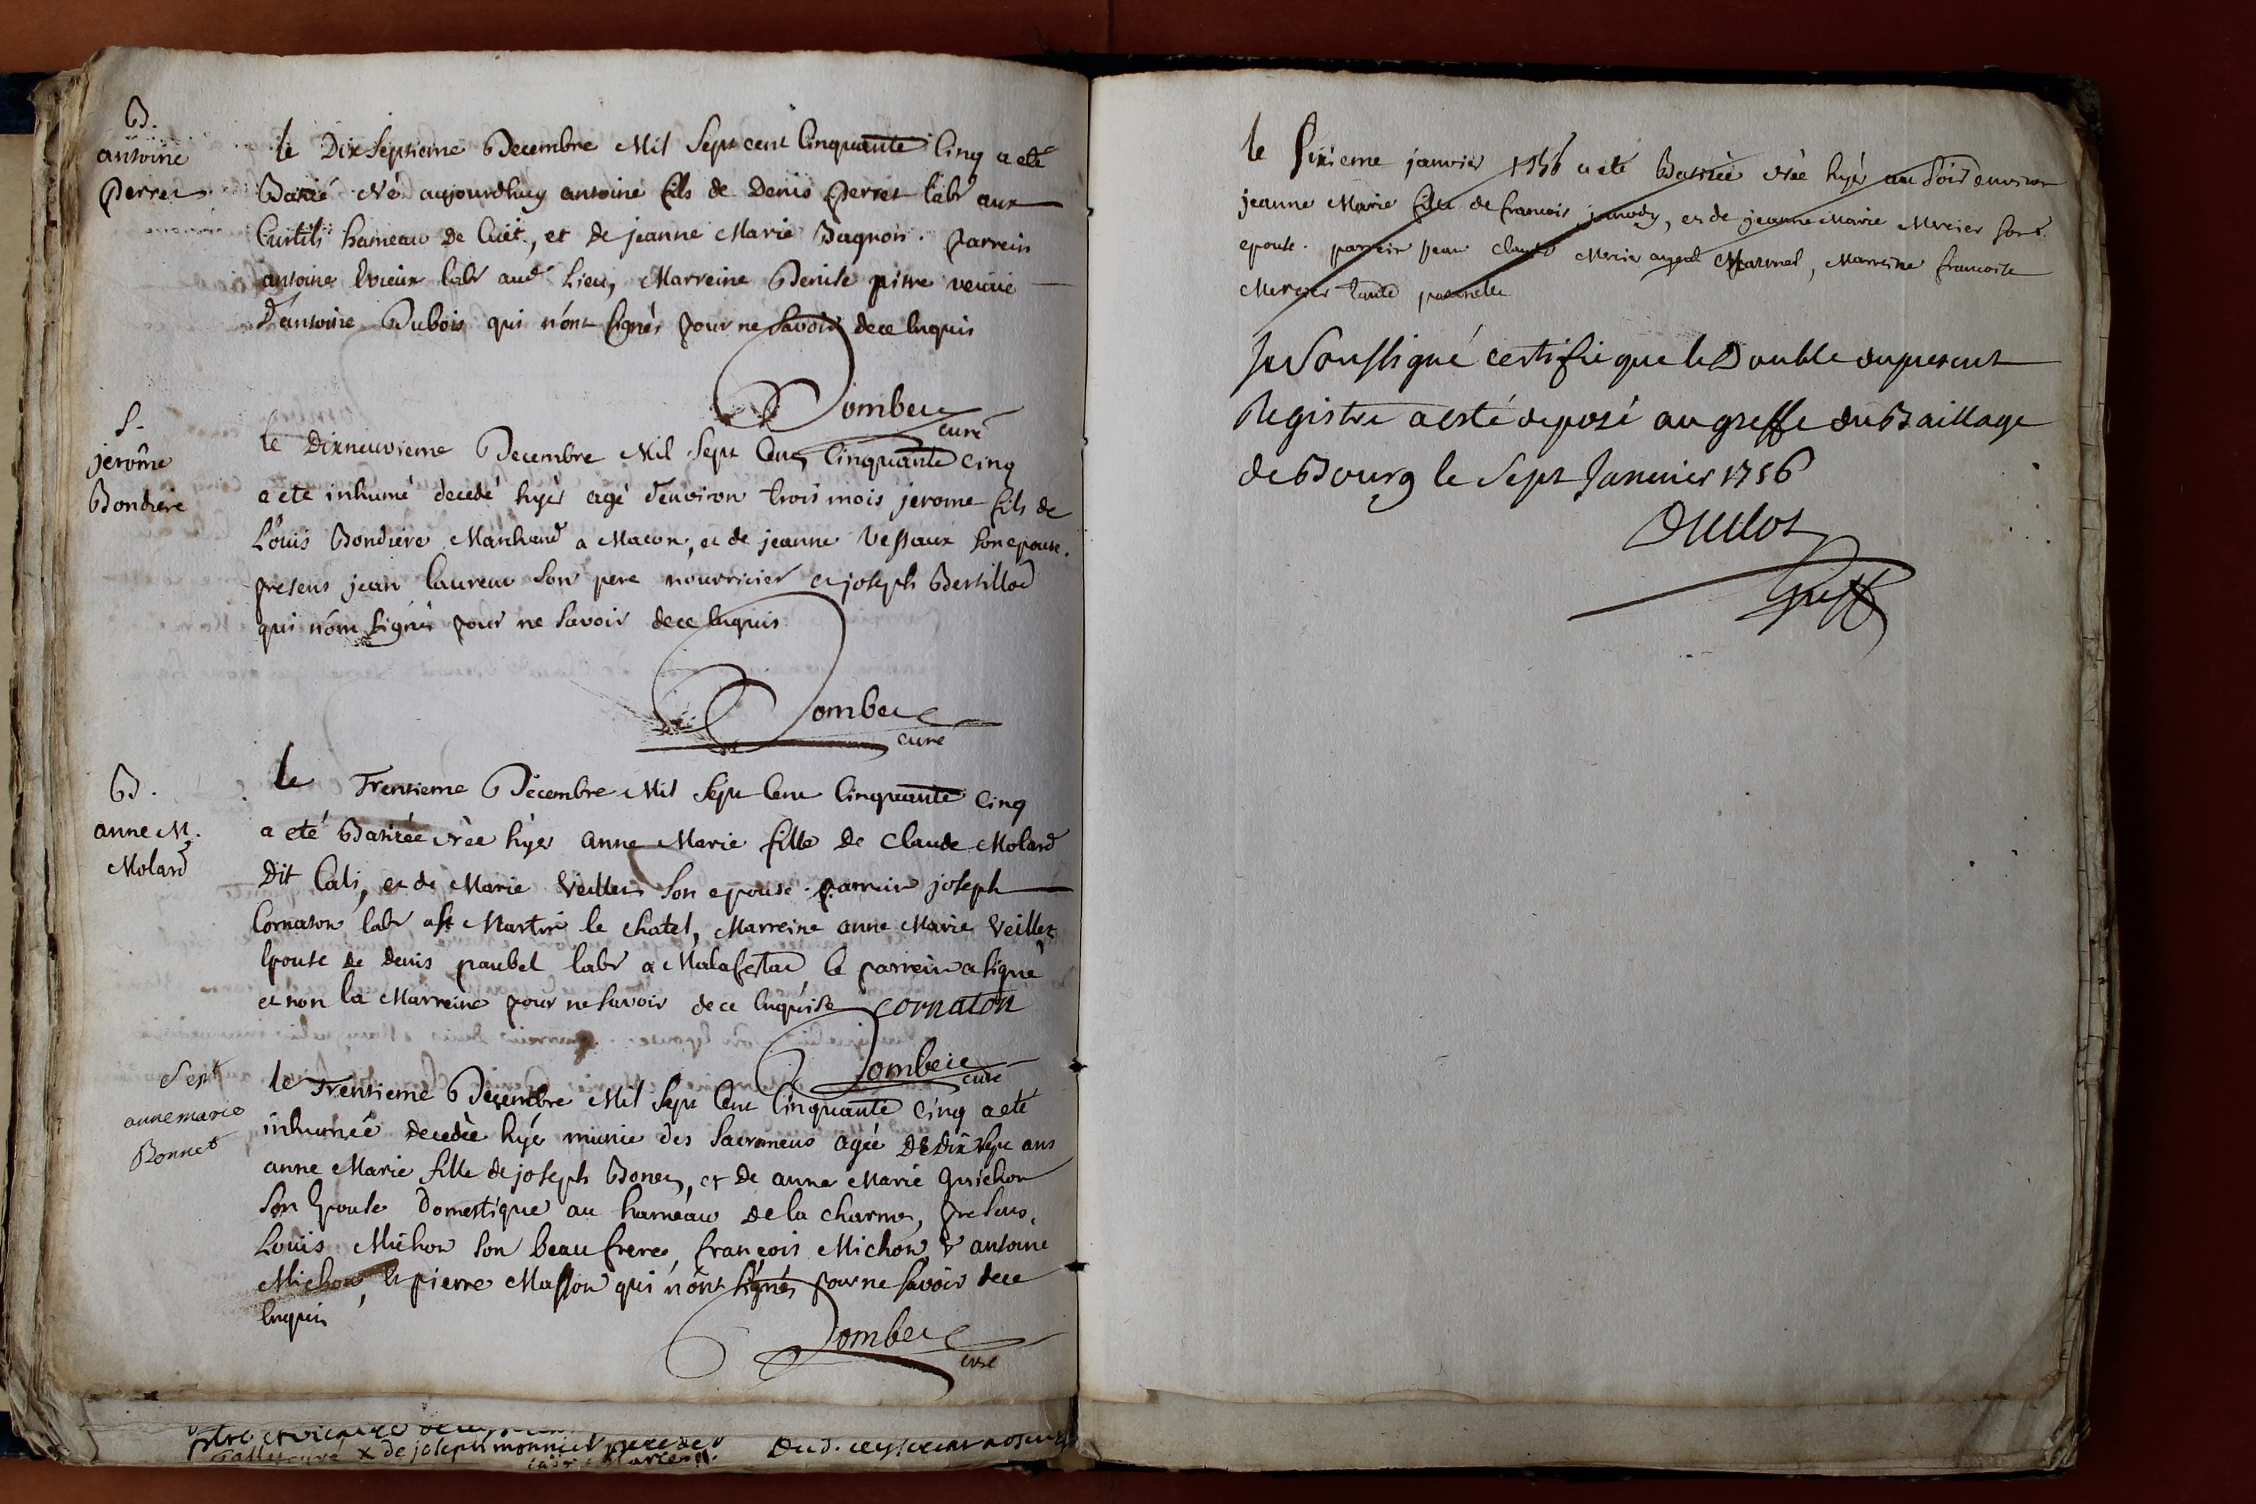 B.
antoine
Perret
le Dix Septieme Decembre Mil Sept cent Cinquante Cinq a eté
Batizé Né aujourdhuy antoine fils de Denis Perret labr aux
Curtils hameau de Cuet, et de jeanne Marie Bagnon. parrein
antoine labr aud. Lieu, Marreine Denise pitre veuve
D'antoine Dubois qui n'ont signés pour ne Savoir de ce Enquis
Dombey
curé
S.
jerôme
Bondiere
le Dixneuvieme Decembre Mil Sept Cent Cinquante Cinq
a eté inhumé decedé hyér agé d'environ trois mois jerome fils de
Louis Bondiere Marchand a Macon, et de jeanne Vessaux Son epouse.
presens jean laurent Son pere nourricier et joseph Bertillod
qui n'ont Signés pour ne Savoir de ce Enquis
Dombey
curé
B.
anne M.
Molard
le Trentieme Décembre Mil Sept Cent Cinquante Cinq
a eté Batizée Née hyér anne Marie fille de Claude Molard
Dit Cali, et de Marie Veillet Son epouse. parrein joseph
Cornaton labr a St Martin le chatel, Marreine anne Marie Veillet
Epouse de denis paubel labr a Malafretaz le parrein a signé
et non la Marreine pour ne Savoir de ce Enquise cornaton
Dombey
curé
Sept
anne marie
Bonnet
le Trentieme Decembre Mil Sept Cent Cinquante Cinq a eté
inhumée decedée hyér munie des Sacremens agée De Dix Sept ans
anne Marie fille de joseph Bonet, et de anne Marie Guichon
Son Epouse Domestique au hameau de la charme, presens
Louis Michon Son beau frere, françois Michon, & antoine
Michon, et pierre Masson qui n'ont Signés pour ne Savoir de ce
Enquis
Dombey
curé
de joseph monnier
le Sixieme janvier 1756 a eté Batizée Née hyér au Soir environ
jeanne Marie fille de francois, et de jeanne Marie Mercier Son
epouse. parrein jean claude Mercier Maternel, Marreine francoise
Mercier tante paternelle
Je Soussigné certifie que le Double du present
Registre a esté deposé au greffe du Baillage
de Bourg le Sept Janvier 1756
Duclos
Greff